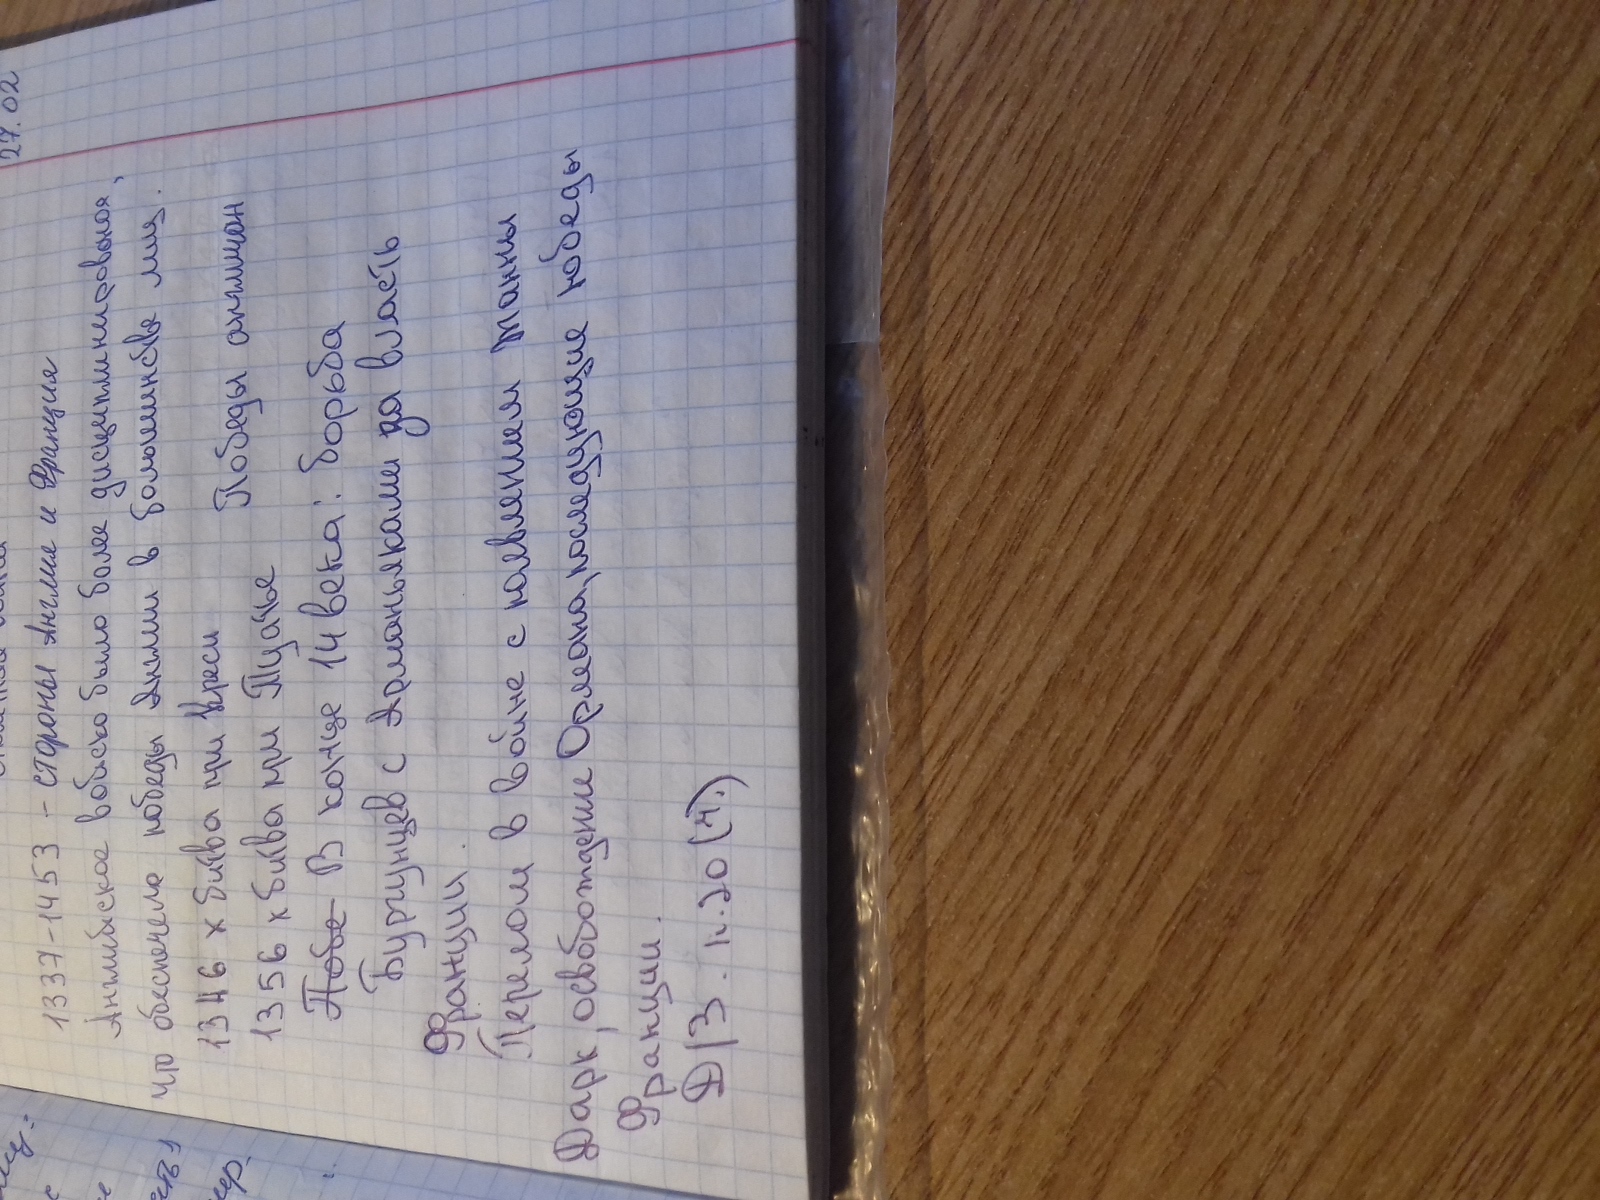 27.02
1337-1453 - стороны Англие и Франция
Английское войско было более дисциплинировыноя,
что обеспечело победы Англии в большинстве миц.
1346 х битва при Креси
Победы англичан
1356 х битва при Пуатье
Побе В конце 14 века: борьба
Бургунцев с Арманьяками за власть
Франции.
Перелом в войне с появлением Жанны
Дарк, освобождение Орлеана, последующие победы
Франции.
Д/З. п.20 (ч.)